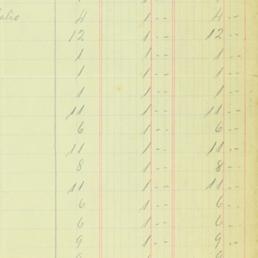 4 1 -- 4 --
12 1 -- 12 --
1 1 -- 1 --
1 1 -- 1 --
1 1 -- 1 --
11 1 -- 11 --
6 1 -- 6 --
11 1 -- 11 --
8 1 -- 8 --
11 1 -- 11 --
6 1 -- 6 --
6 1 -- 6 --
9 1 -- 9 --